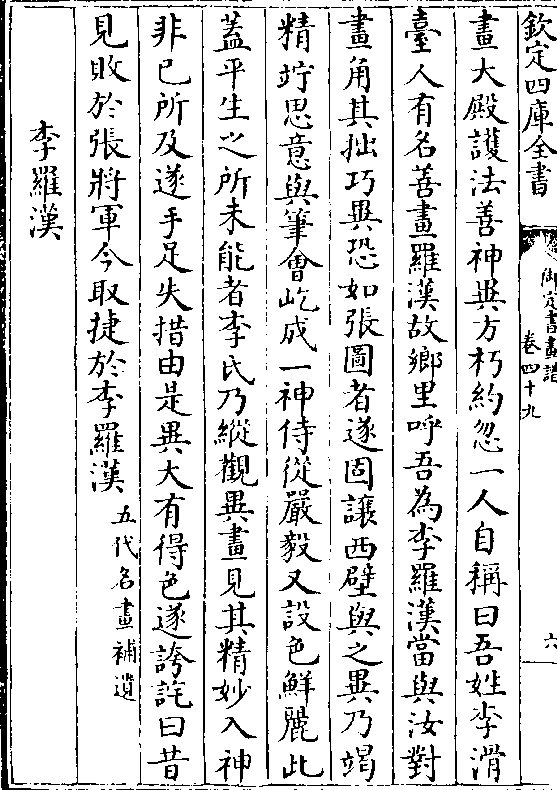 欽定四庫全書
御定書畫譜
卷四十九
六
畫大殿護法善神㒸方朽約忽一人自稱曰吾姓李滑
臺人有名善畫羅漢故鄉里呼吾為李羅漢當與汝對
畫角其拙巧㒸恐如張圖者遂固讓西壁與之㒸乃竭
精竚思意與筆會屹成一神侍從嚴毅又設色鮮麗此
蓋平生之所未能者李氏乃縱觀㒸畫見其精妙入神
非已所及遂手足失措由是㒸大有得色遂誇詫曰昔
見敗於張將軍今取捷於李羅漢 五代名畫補遺
李羅漢